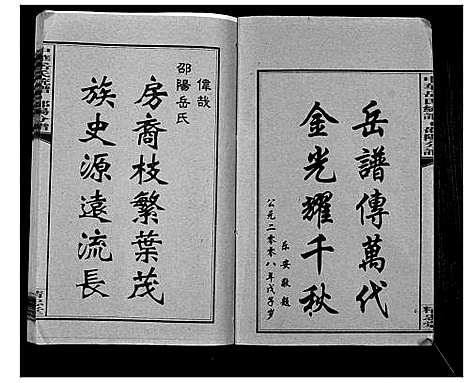 岳譜傳萬代
金光耀千秋
岳安敬題
公元二零零八年戊子岁
偉哉
邵陽岳氏
房裔枝繁葉茂
族史源遠流長